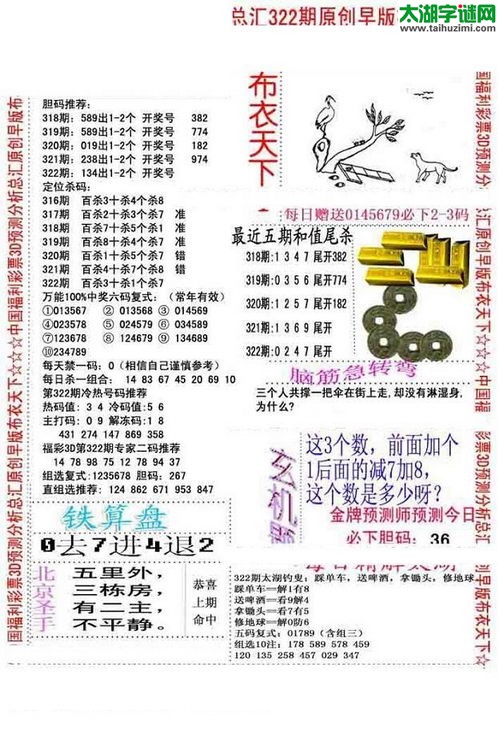 总汇322期原创早版
太湖字谜网
www.taihuzimi.com
胆码推荐:
318期: 589出1-2个 开奖号 382
319期: 589出1-2个 开奖号 774
320期: 019出1-2个 开奖号 182
321期: 238出1-2个 开奖号 974
322期: 134出1-2个 开奖号
定位杀码:
316期 百杀3十杀4个杀8
317期 百杀3十杀3个杀7 准
318期 百杀1十杀7个杀7 准
319期 百杀4十杀1个杀6 准
320期 百杀1十杀4个杀7 错
321期 百杀4十杀7个杀7 错
322期 百杀3十杀1个杀7
万能100%中奖六码复式: (常年有效)
①013567 ②013568 ③014569
④023578 ⑤024579 ⑥034589
⑦123678 ⑧124679 ⑨134689
⑩234789
每天禁一码: 0 (相信自己谨慎参考)
每日杀一组合: 14 83 67 45 20 69 10
第322期冷热号码推荐
热码值: 3 4 冷码值: 5 6
主打码: 0 9 解冻码: 1 8
431 274 147 869 358
福彩3D第322期专家二码推荐
14 78 98 75 12 78 94 37
组选复式: 1235678 胆码: 267
直组选推荐: 124 862 671 953 847
铁算盘
0去7进4退2
北京圣手
五里外,
三栋房,
有二主,
不平静。
恭喜
上期
命中
布衣天下
每日赠送0145679必下2-3码
最近五期和值尾杀
318期: 1 3 4 7 尾开382
319期: 0 3 5 6 尾开774
320期: 1 2 5 7 尾开182
321期: 1 3 6 9 尾开
322期: 0 2 4 7 尾开
脑筋急转弯
三个人共撑一把伞在街上走, 却没有淋湿身.
为什么?
玄机题
这3个数, 前面加个
1后面的减7加8,
这个数是多少呀?
金牌预测师预测今日
必下胆码: 36
每日精解太湖
322期太湖钓叟: 踩单车, 送啤酒, 拿锄头, 修地球.
踩单车==解1有8
送啤酒==看9解4
拿锄头==看7有5
修地球==解0防6
五码复式: 01789 (含组三)
组选10注: 178 589 578 459
120 135 258 457 029 347
中国福利彩票3D预测分析总汇原创早版布衣天下☆☆☆